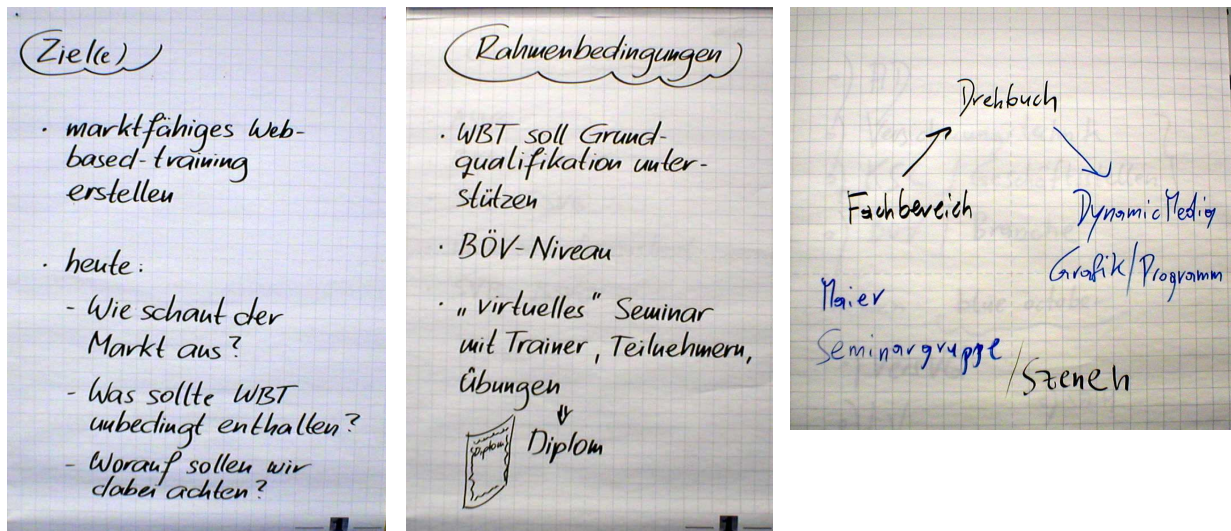 Ziel(e)
· marktfähiges Web-
based-training
erstellen
· heute:
- Wie schaut der
Markt aus?
- Was sollte WBT
unbedingt enthalten?
- Worauf sollen wir
dabei achten?
Rahmenbedingungen
· WBT soll Grund-
qualifikation unter-
stützen
· BÖV-Niveau
· „virtuelles" Seminar
mit Trainer, Teilnehmern,
Übungen
⇓
Diplom
Diplom
Drehbuch
Fachbereich
DynamicMedia
Grafik/Programm
Maier
Seminargruppe
/Szenen